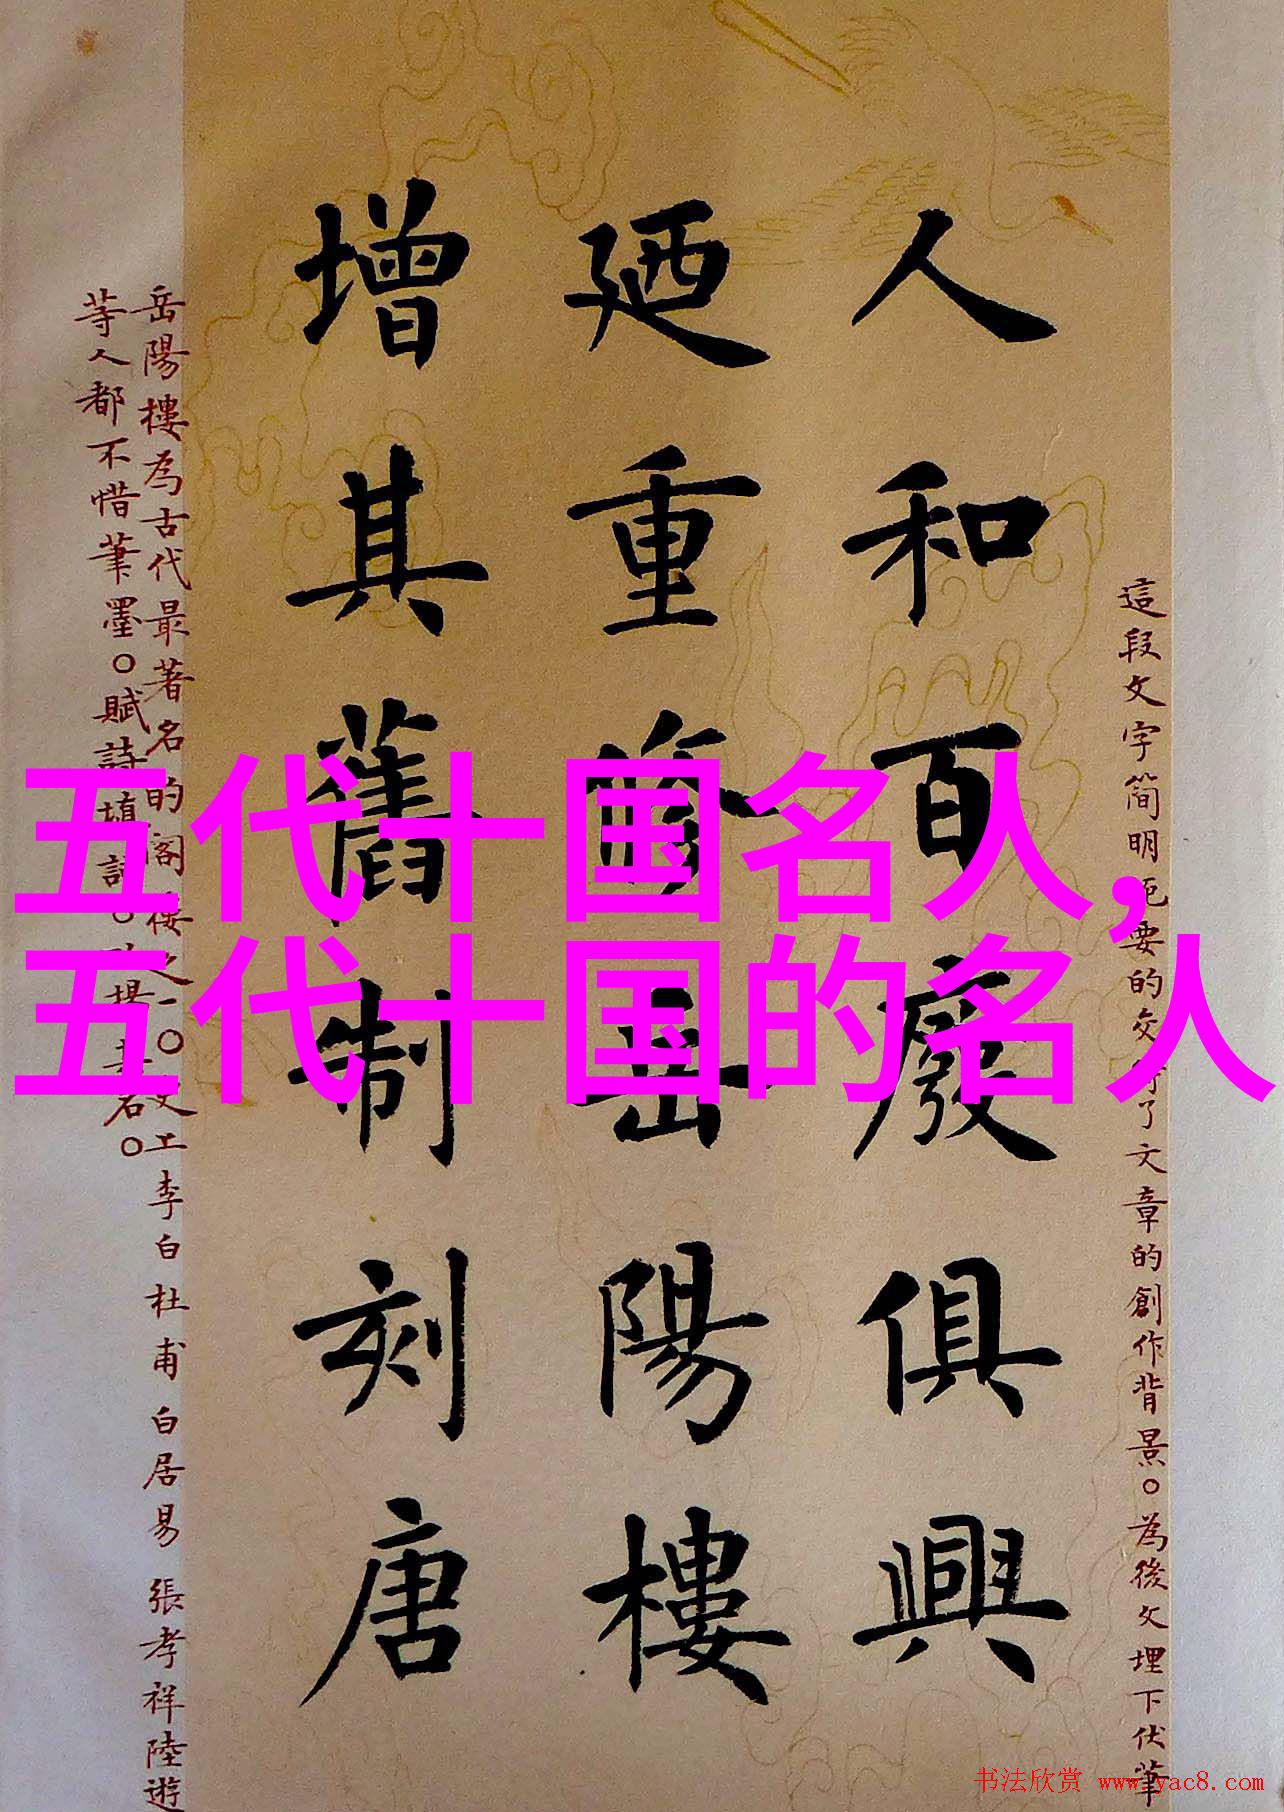 五代十国名人,
五代十国的名人
這段文字简明扼要的交待了文章的創作背景。為後文埋下伏筆
人和百廢俱興
廼重修岳陽樓
增其舊制刻唐
岳陽樓為古代最著名的閣樓之一。文工李白杜甫白居易張孝祥陸遊
等人都不惜筆墨。賦詩填詞。揚名。
书法欣赏 www.yac8.com